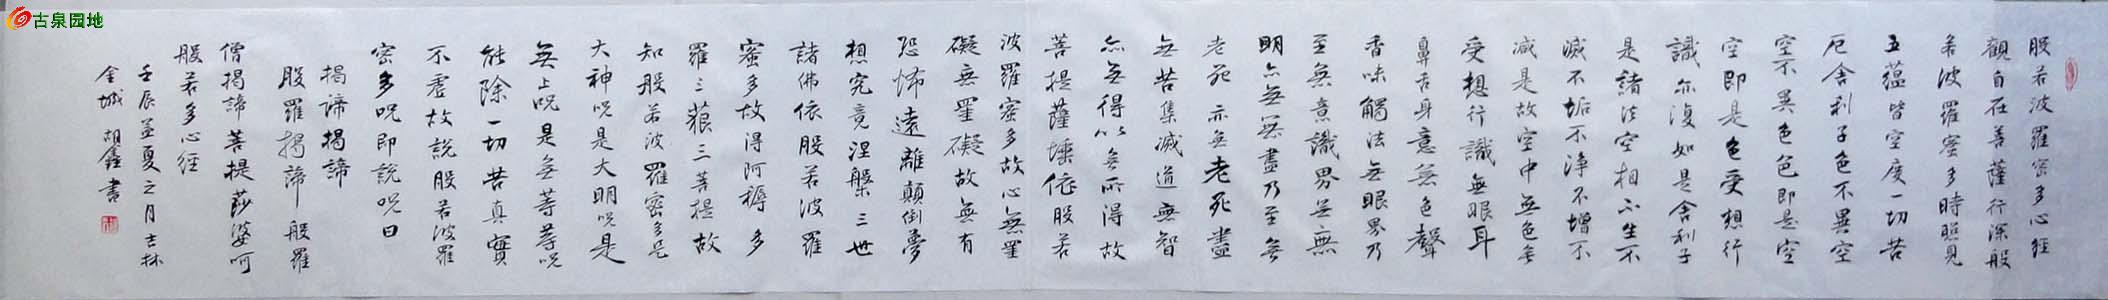 古泉园地
般若波羅密多心經
觀自在菩薩行深般
若波羅蜜多時照見
五蘊皆空度一切苦
厄舍利子色不異空
空不異色色即是空
空即是色受想行
識亦復如是舍利子
是諸法空相不生不
滅不垢不淨不增不
减是故空中無色無
受想行識無眼耳
鼻舌身意無色聲
香味觸法無眼界乃
至無意識界無無
明亦無無明盡乃至無
老死亦無老死盡
無苦集滅道無智
亦無得以無所得故
菩提薩埵依般若
波羅蜜多故心無罣
礙無罣礙故無有
恐怖遠離顛倒夢
想究竟涅槃三世
諸佛依般若波羅
蜜多故得阿耨多
羅三藐三菩提故
知般若波羅密多是
大神呪是大明呪是
無上呪是無等等呪
能除一切苦真實
不虛故說般若波羅
密多呪即説呪曰
揭諦揭諦
般羅揭諦般羅
僧揭諦菩提莎婆呵
般若多心經
壬辰孟夏之月吉林
金城胡鑫書